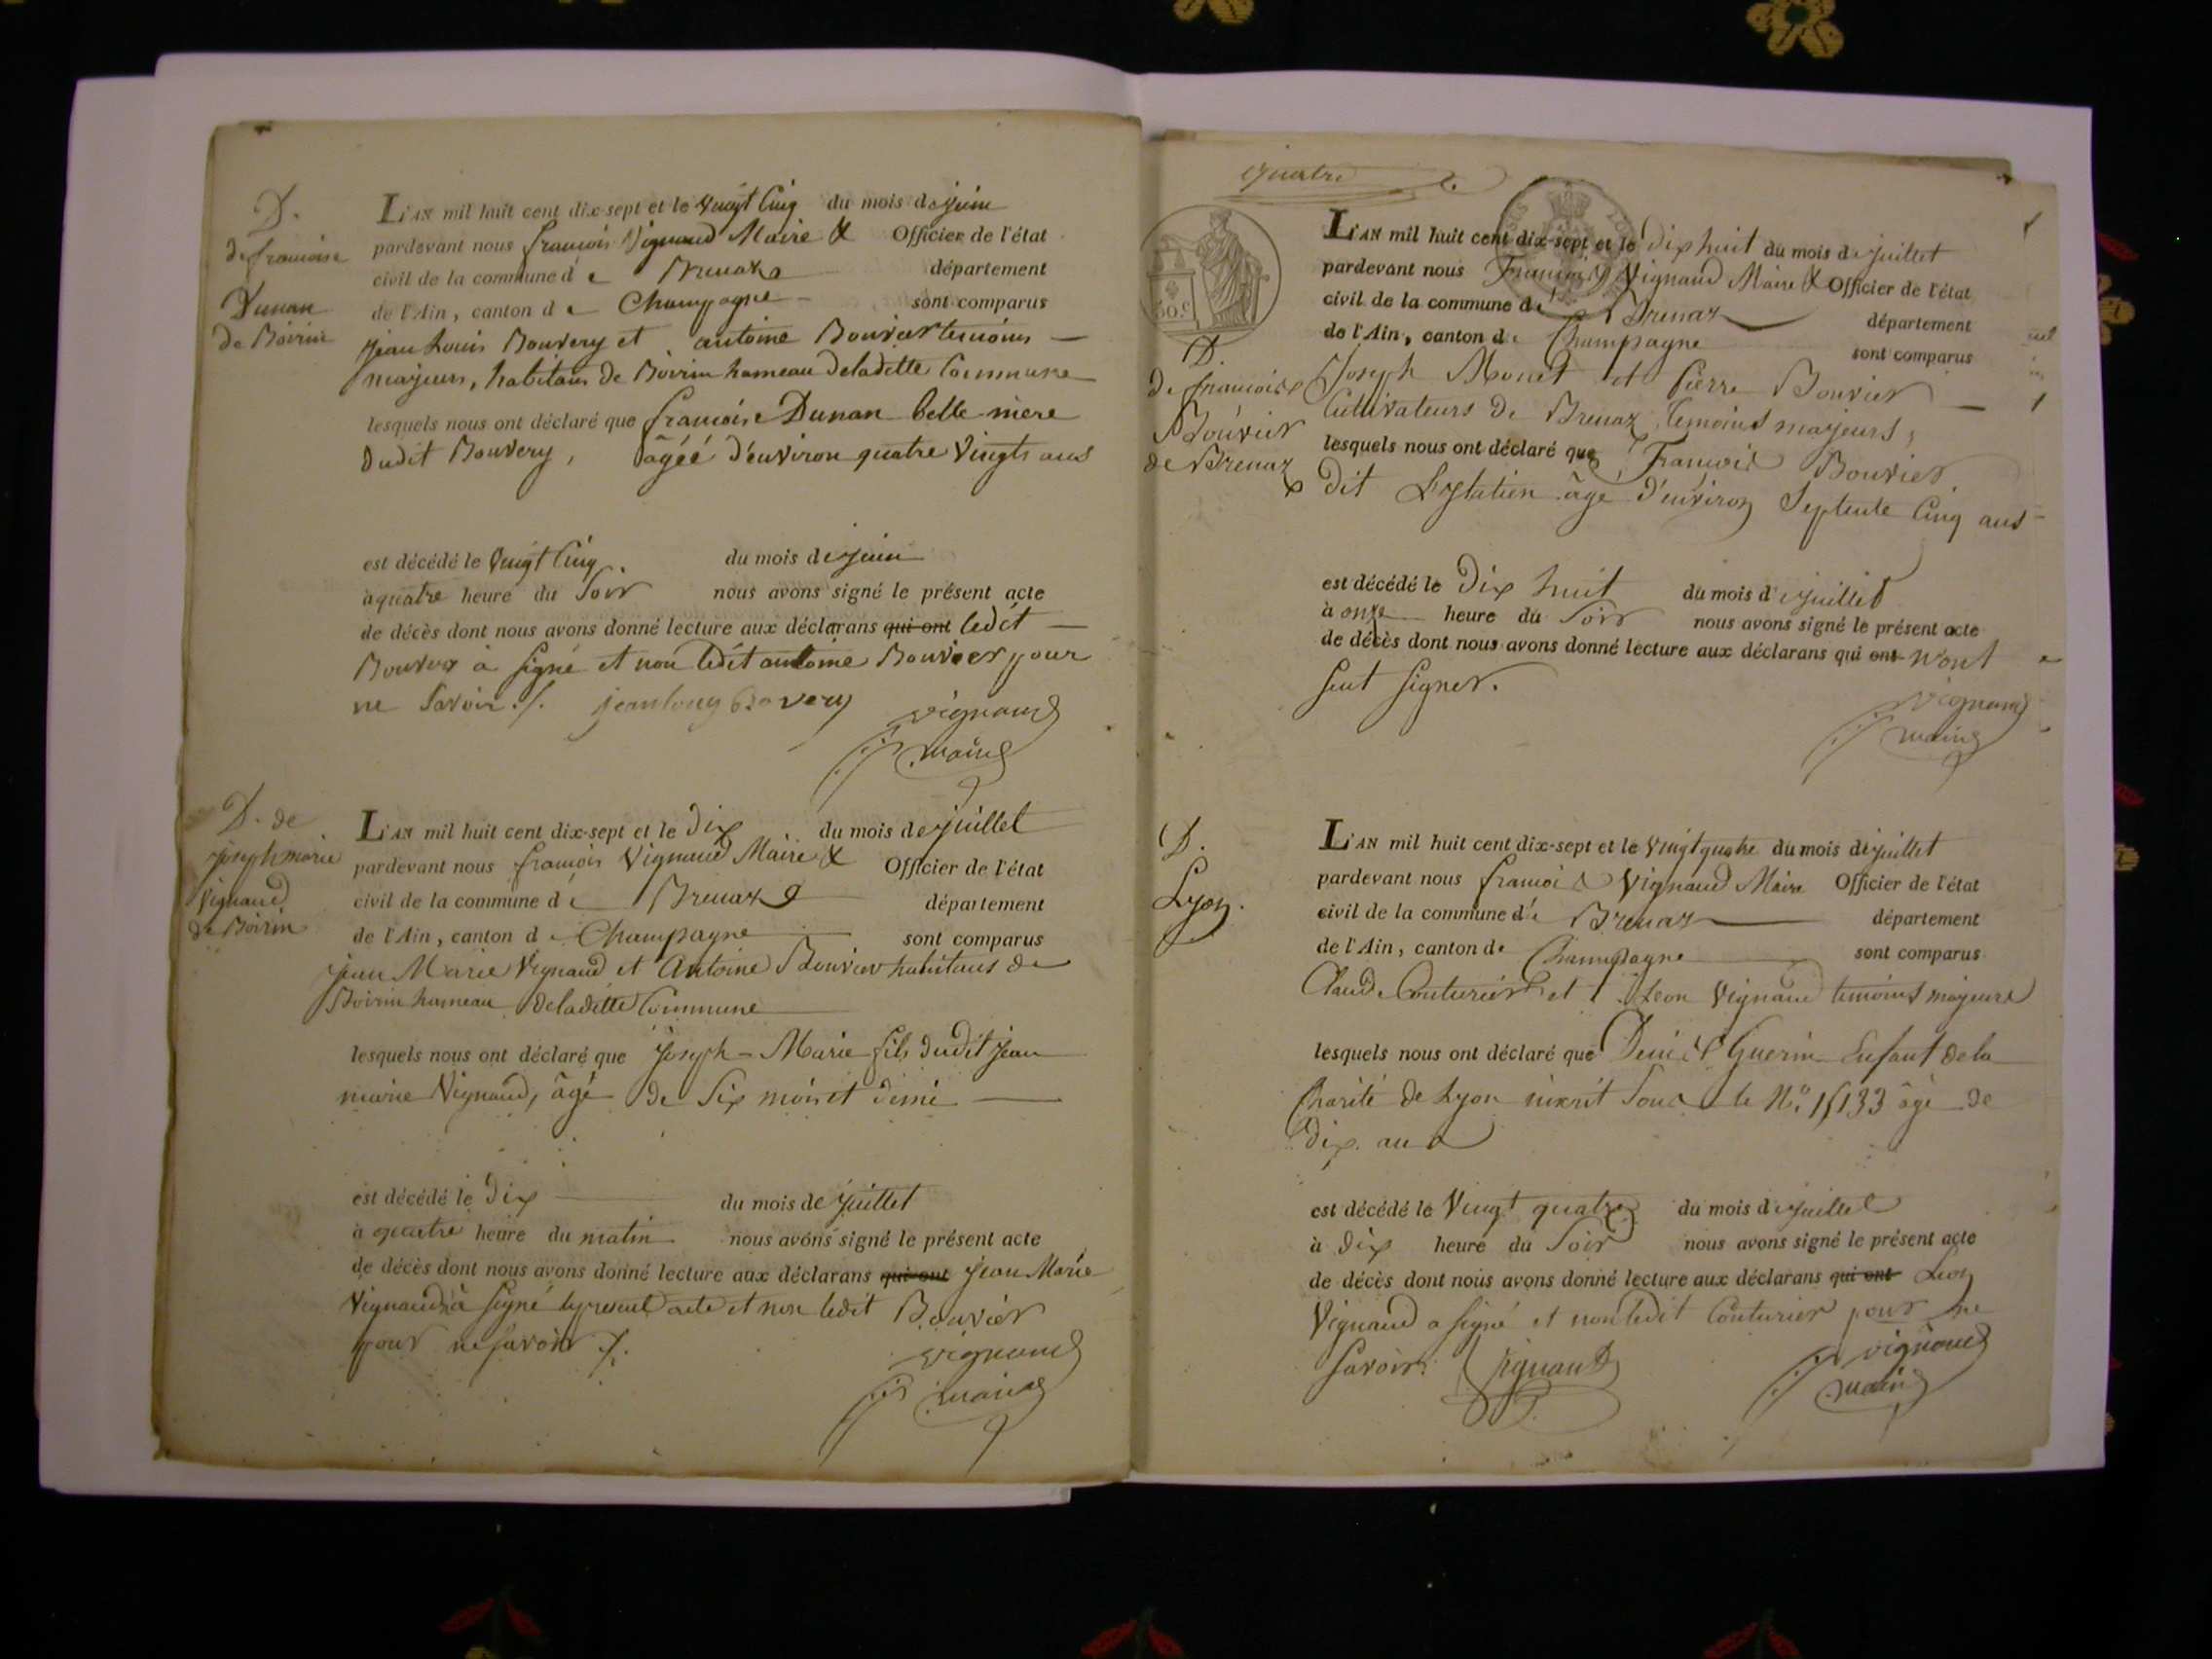 D.
de francoise
Dunan
de Boirin
L'AN mil huit cent dix-sept et le vingt Cinq du mois de juin
pardevant nous francois Vignaud Maire & Officier de l'état
civil de la commune de Brenaz département
de l'Ain, canton de Champagne sont comparus
Jean Louis Bouvery et antoine Bouvier temoins
majeurs, habitans de Boirin hameau de ladette Commune
lesquels nous ont déclaré que francoise Dunan belle mere
dudit Bouvery, âgéé d'environ quatre Vingts ans
est décédé le Vingt Cinq du mois de juin
à quatre heure du Soir nous avons signé le présent acte
de décès dont nous avons donné lecture aux déclarans qui ont ledit
à Signé et non ledit antoine Bouvier pour
ne Savoir ./. jean louy Bovery vignaud
maire
D. de
Joseph marie
Vignaud
de Boirin
L'AN mil huit cent dix-sept et le dix du mois de juillet
pardevant nous francois Vignaud Maire & Officier de l'état
civil de la commune dé Brenaz département
de l'Ain, canton de Champagne sont comparus
Jean Marie Vignaud et Antoine Bouvier habitans de
Boirin hameau de ladette Commune
lesquels nous ont déclaré que Joseph-Marie fils dudit Jean
marie Vignaud, âgé de Six mois et demi
est décédé le Dix du mois de Juillet
à quatre heure du matin nous avons signé le présent acte
de décès dont nous avons donné lecture aux déclarans qui ont Jean Marie
Vignaud à Signé le present acte et non ledit Bouvier
pour ne Savoir ./.
vignaud
maire
quatre
30 c.
D.
de francois
Bouvier
de Brenaz
L'AN mil huit cent dix-sept et le Dix huit du mois de juillet
pardevant nous Francois Vignaud Maire & Officier de l'état
civil de la commune de Brenaz département
de l'Ain, canton de Champagne sont comparus
Joseph Monet et Pierre Bouvier
Cultivateurs de Brenaz, temoins majeurs,
lesquels nous ont déclaré que Francois Bouvier
dit âgé d'environ Septente Cinq ans
est décédé le Dix huit du mois de juillet
à onze heure du Soir nous avons signé le présent acte
de décès dont nous avons donné lecture aux déclarans qui ont n'ont
seut Signer.
vignaud
maire
D.
Lyon.
L'AN mil huit cent dix-sept et le Vingt quatre du mois de juillet
pardevant nous francois Vignaud Maire Officier de l'état
civil de la commune dé Brenaz département
de l'Ain, canton de Champagne sont comparus
Claude Couturier et Leon Vignaud temoins majeurs
lesquels nous ont déclaré que Denis Guerin Enfant de la
Charité de Lyon inscrit Sous le N.º âgé de
dix ans
est décédé le Vingt quatre du mois de juillet
à dix heure du Soir nous avons signé le présent acte
de décès dont nous avons donné lecture aux déclarans qui ont Leon
Vignaud a Signé et non ledit Couturier pour ne
Savoir. Vignaud vignaud
maire